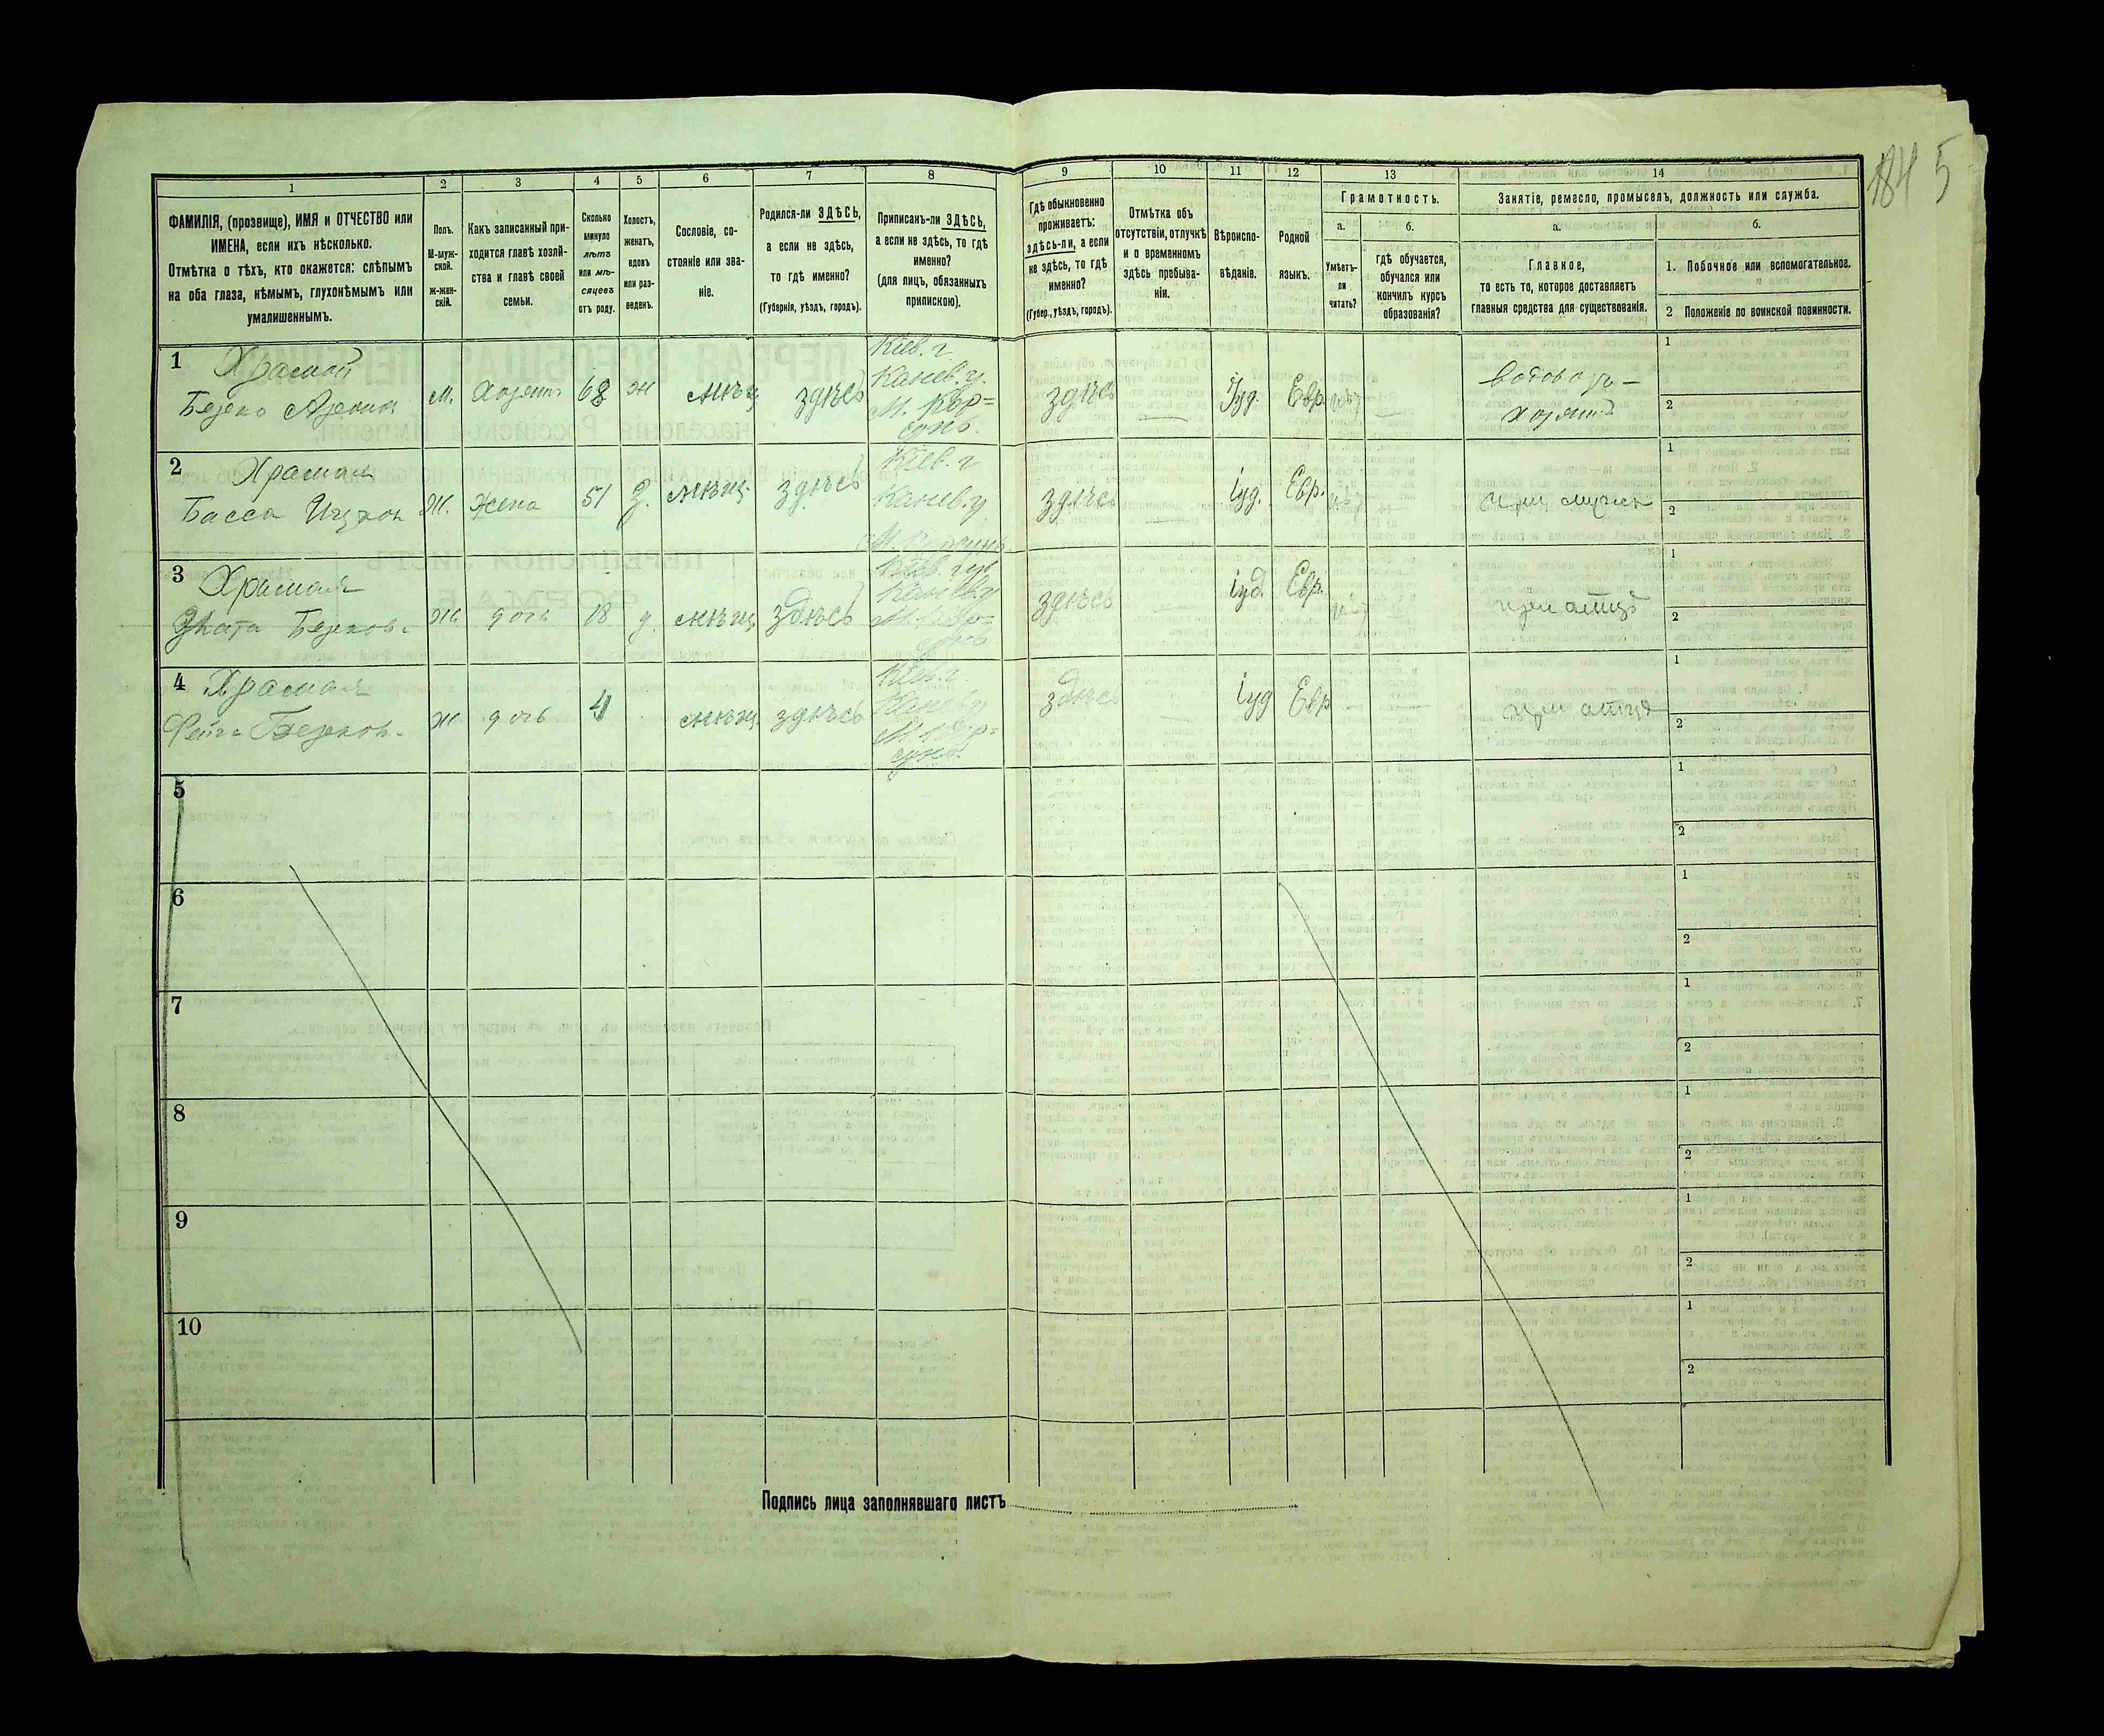 184 5
1
2
3
4
5
6
7
8
9
10
11
12
13
14
ФАМИЛІЯ, (прозвище), ИМЯ и ОТЧЕСТВО или
ИМЕНА, если ихъ нѣсколько.
Отмѣтка о тѣхъ, кто окажется: слѣпымъ
на оба глаза, нѣмымъ, глухонѣмымъ или
умалишеннымъ.
Полъ.
М-муж-
ской.
ж-жен-
скій.
Какъ записанный при-
ходится главѣ хозяй-
ства и главѣ своей
семьи.
Сколько
минуло
лѣтъ
или мѣ-
сяцевъ
отъ роду.
Холостъ,
женатъ,
вдовъ
или раз-
веденъ.
Сословіе, со-
стояніе или зва-
ніе.
Родился-ли ЗДѢСЬ,
а если не здѣсь,
то гдѣ именно?
(Губернія, уѣздъ, городъ).
Приписанъ-ли ЗДѢСЬ,
а если не здѣсь, то гдѣ
именно?
(для лицъ, обязанныхъ
припискою).
Гдѣ обыкновенно
проживаетъ:
здѣсь-ли, а если
не здѣсь, то гдѣ
именно?
(Губер., уѣздъ, городъ).
Отмѣтка объ
отсутствіи, отлучкѣ
и о временномъ
здѣсь пребыва-
ніи.
Вѣроиспо-
вѣданіе.
Родной
языкъ.
Грамотность.
а.
Умѣетъ-
ли
читать?
б.
гдѣ обучается,
обучался или
кончилъ курсъ
образованія?
Занятіе, ремесло, промыселъ, должность или служба.
а.
Главное,
то есть то, которое доставляетъ
главныя средства для существованія.
б.
1. Побочное или вспомогательное.
2 Положеніе по воинской повинности.
1
Храмой
Берко
М. 68 ж мѣщ. здѣсь
Кіев. г.
Канев. у.
М. Кор=
сунь.
здѣсь — Іуд. Евр. нѣт —
водовозъ —
хозяинъ
1
2
2
Храмая
Басса
Ж. жена 51 з. мѣщ. здѣсь
Кіев. г
Канев. у
М. Корсунь
здѣсь — іуд. Евр. нѣт —
при мужѣ
1
2
3
Храмая
Злата Берков.
Ж дочь 18 д. мѣщ здѣсь
Кіев. губ
Канев у
М. Кор=
сунь
здѣсь — іуд. Евр. нѣт —
при отцѣ
1
2
4
Храмая
Фейга Берков.
Ж дочь 4 мѣщ. здѣсь
Кіев. г
Канев у
М Кор=
сунь.
здѣсь — іуд Евр — —
при отцѣ
1
2
5
1
2
6
1
2
7
1
2
8
1
2
9
1
2
10
1
2
Подпись лица заполнявшаго листъ